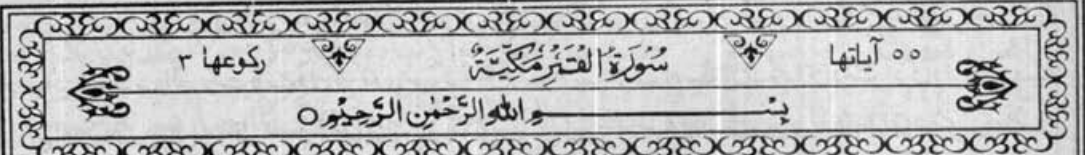 ٥٥ آیاتها سُوْرَةُ الْقَمَرِ مَكِّيَّةٌ رکوعها ٣
بِسْـــــــــمِ اللهِ الرَّحْمٰنِ الرَّحِيْمِ ○